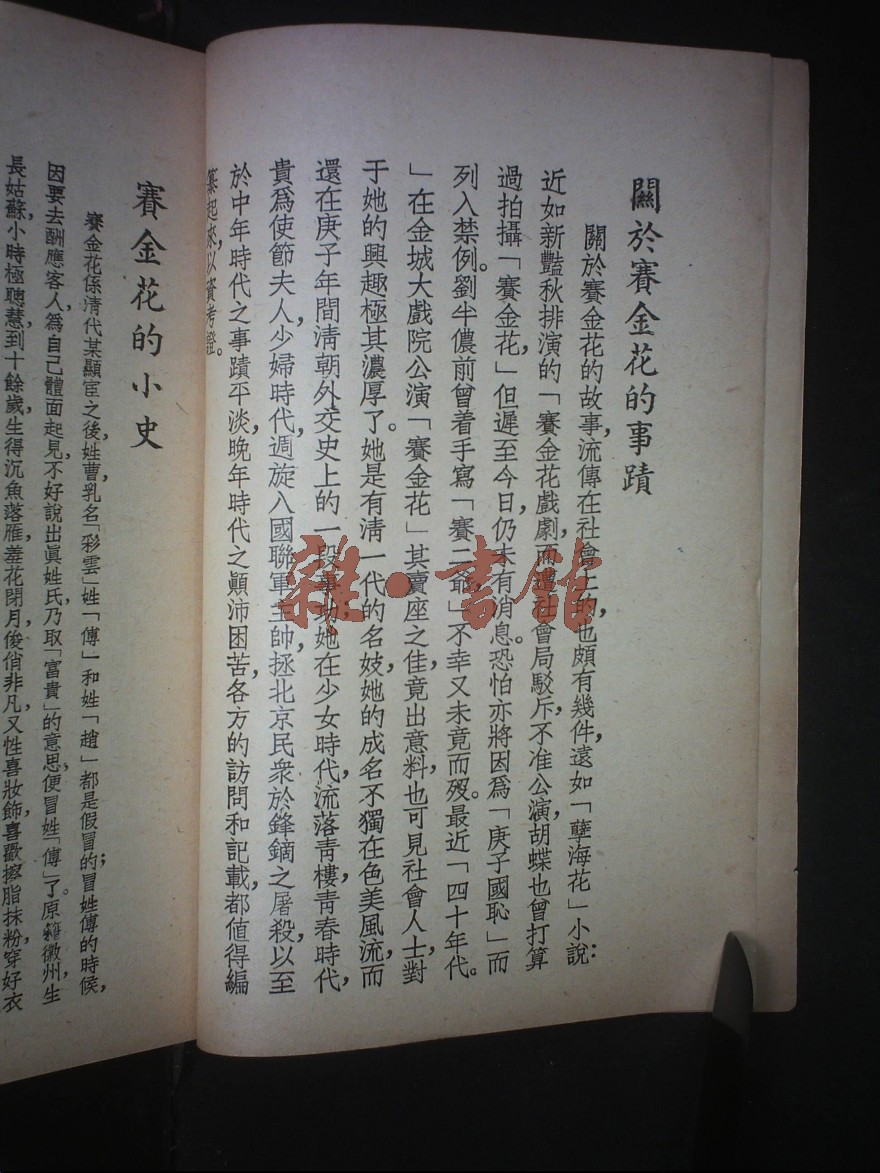 關於賽金花的事蹟
關於賽金花的故事,流傳在社會上的,也頗有幾件,遠如「孽海花」小說:
近如新豔秋排演的「賽金花戲劇,而遭社會局駁斥,不准公演,胡蝶也曾打算
過拍攝「賽金花,」但遲至今日,仍未有消息。恐怕亦將因爲「庚子國恥,」而
列入禁例。劉半儂前曾着手寫「賽二爺,」不幸又未竟而歿。最近「四十年代。
」在金城大戲院公演「賽金花」其賣座之佳,竟出意料,也可見社會人士對
于她的興趣極其濃厚了。她是有淸一代的名妓,她的成名不獨在色美風流,而
還在庚子年間淸朝外交史上的一段事功,她在少女時代,流落靑樓,靑春時代,
貴爲使節夫人,少婦時代,週旋入國聯軍主帥,拯北京民衆於鋒鏑之屠殺,以至
於中年時代之事蹟平淡,晚年時代之顚沛困苦,各方的訪問和記載,都値得編
纂起來,以資考證。
賽金花的小史
賽金花係淸代某顯宦之後,姓曹,乳名「彩雲」姓「傅」和姓「趙」都是假冒的;冒姓傅的時候,
因要去酬應客人,爲自己體面起見,不好說出眞姓氏,乃取「富貴」的意思,便冒姓「傅」了。原籍徽州,生
長姑蘇,小時極聰慧,到十餘歲,生得沉魚落雁,羞花閉月,俊俏非凡,又性喜妝飾,喜歡擦脂抹粉,穿好衣
雜·書館